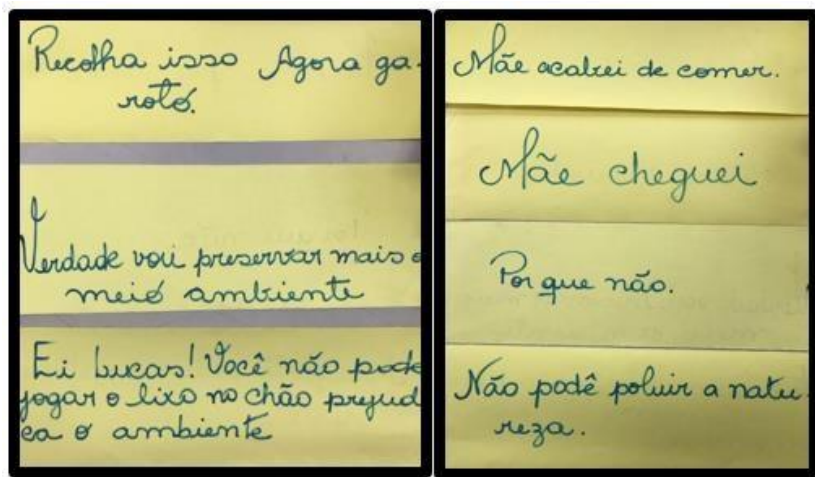 Recolha isso Agora ga-
roto.
Verdade vou preservar mais o
meio ambiente
Ei Lucas! Você não pode
jogar o lixo no chão prejudi
ca o ambiente
Mãe acabei de comer.
Mãe cheguei
Por que não.
Não podê poluir a natu-
reza.